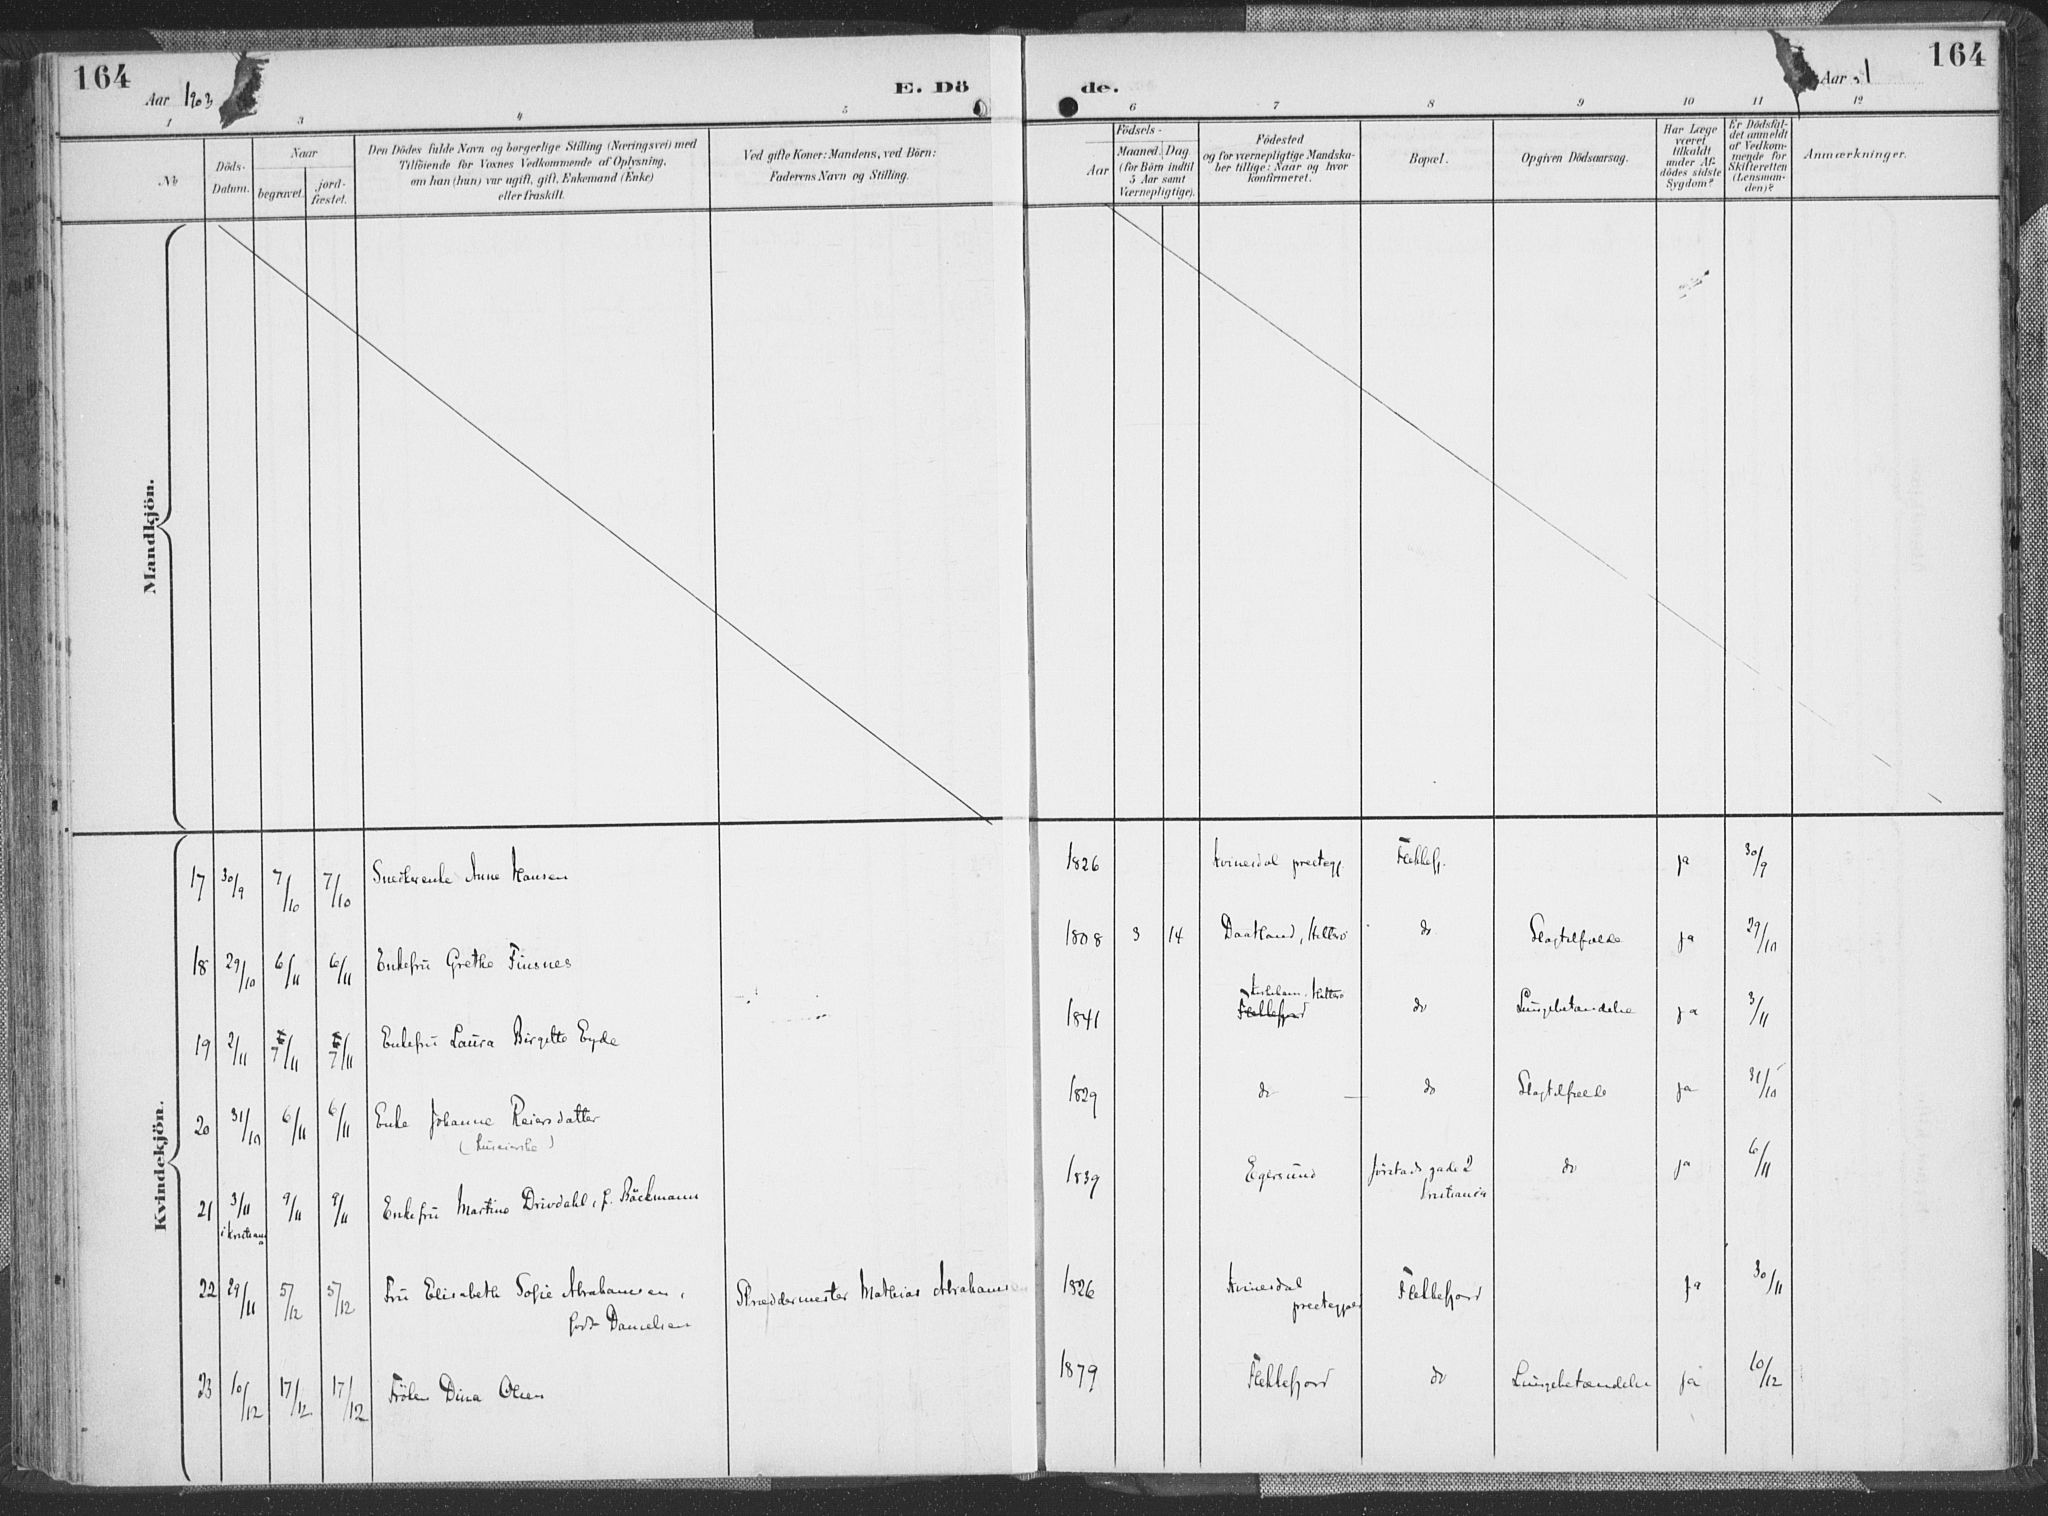 164
Aar 1903
E. Dö
de.
Aar
164
1 3 4 5 6 7 8 9 10 11 12
No
Döds-
Datum.
Naar
begravet.
jord-
fæstet.
Den Dödes fulde Navn og borgerlige Stilling (Næringsvei) med
Tilföiende for Voxnes Vedkommende af Oplysning,
om han (hun) var ugift, gift, Enkemand (Enke)
eller fraskilt.
Ved gifte Koner: Mandens, ved Börn:
Faderens Navn og Stilling.
Födsels-
Aar
Maaned. Dag
(for Börn indtil
5 Aar samt
Værnepligtige).
Födested
og for værnepligtige Mandska-
ber tillige: Naar og hvor
konfirmeret.
Bopæl.
Opgiven Dödsaarsag.
Har Læge
været
tilkaldt
under Af-
dödes sidste
Sygdom?
Er Dödsfal-
det anmeldt
af Vedkom-
mende for
Skifteretten
(Lensman-
den)?
Anmærkninger.
Mandkjön.
Kvindekjön.
17 30/9 7/10 7/10 Snedkerenke Anne Hansen 1826 Kvinesdal prestegj. Flekkefj. ja 30/9
18 29/10 6/11 6/11 Enkefru Grethe Finsnes 1808 3 14 Daatland, Hitterö do Slagtilfælde ja 29/10
19 2/11 7/11 7/11 Enkefru Laura Birgitte Eyde 1841 Hitterö
Flekkefjord do Lungebetændelse ja 3/11
20 31/10 6/11 6/11 Enke Johanne Reiersdatter 1829 do do Slagtilfælde ja 31/10
21 3/11 9/11 9/11 Enkefru Martine Drivdahl, f. Bäckmann 1839 Egersund gade 2 do ja 6/11
i Kristiania Kristiania
22 29/11 5/12 5/12 Fru Elisabeth Sofie Abrahamsen, Skræddermester Mathias Abrahamsen 1826 Kvinesdal Flekkefjord ja 30/11
födt Danielsen prestegjæld
23 10/12 17/12 17/12 Fröken Dina Olsen 1879 Flekkefjord do Lungebetændelse ja 10/12